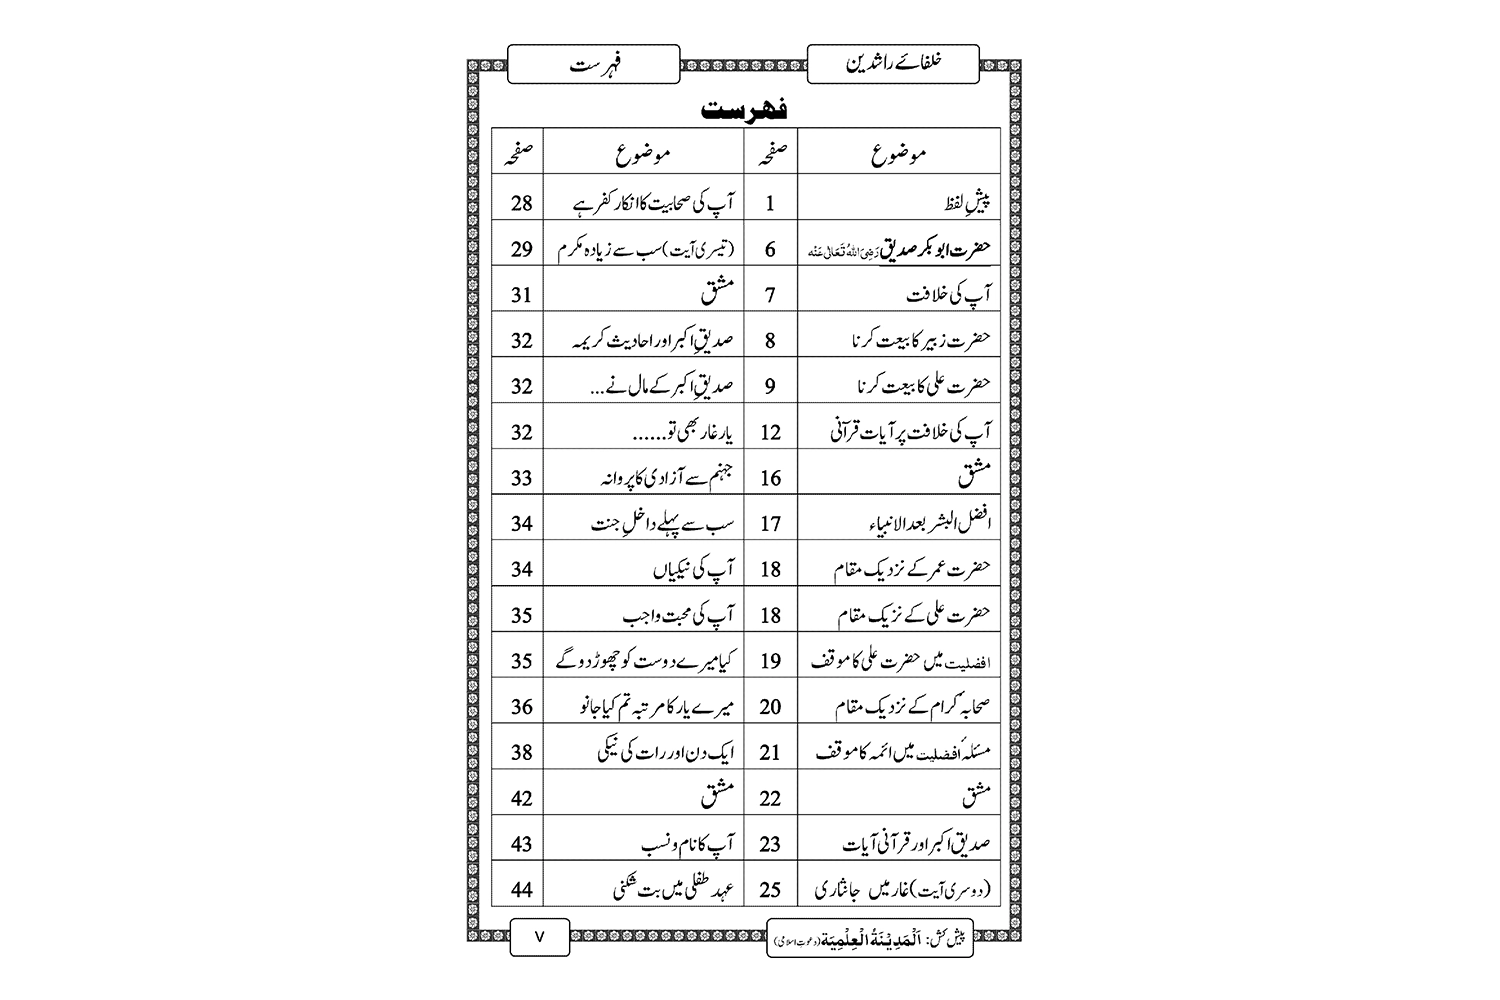 خلفائے راشدین فہرست
فہرست
موضوع صفحہ موضوع صفحہ
پیشِ لفظ 1 آپ کی صحابیت کا انکار کفر ہے 28
حضرت ابو بکر صدیق رَضِیَ اللہُ تَعَالٰی عَنْہ 6 (تیسری آیت) سب سے زیادہ مکرم 29
آپ کی خلافت 7 مشق 31
حضرت زبیر کا بیعت کرنا 8 صدیقِ اکبر اور احادیث کریمہ 32
حضرت علی کا بیعت کرنا 9 صدیقِ اکبر کے مال نے... 32
آپ کی خلافت پر آیات قرآنی 12 یارِ غار بھی تو...... 32
مشق 16 جہنم سے آزادی کا پروانہ 33
افضل البشر بعد الانبیاء 17 سب سے پہلے داخلِ جنت 34
حضرت عمر کے نزدیک مقام 18 آپ کی نیکیاں 34
حضرت علی کے نزیک مقام 18 آپ کی محبت واجب 35
افضلیت میں حضرت علی کا موقف 19 کیا میرے دوست کو چھوڑ دو گے 35
صحابہ کرام کے نزدیک مقام 20 میرے یار کا مرتبہ تم کیا جانو 36
مسئلۂ افضلیت میں ائمہ کا موقف 21 ایک دن اور رات کی نیکی 38
مشق 22 مشق 42
صدیق اکبر اور قرآنی آیات 23 آپ کا نام و نسب 43
(دوسری آیت) غار میں جانثاری 25 عہد طفلی میں بت شکنی 44
پیش کش: اَلْمَدِیْنَۃُ الْعِلْمِیَۃ (دعوتِ اسلامی) ۷